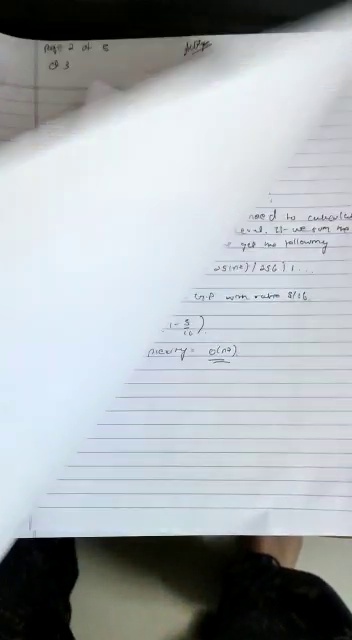 Page 2 of 8
Q 3
need to calculate
level. If we sum the
get the following
25(n²)/256) + ...
G.P with ratio 5/16
1 - 5/16)
O(n²)